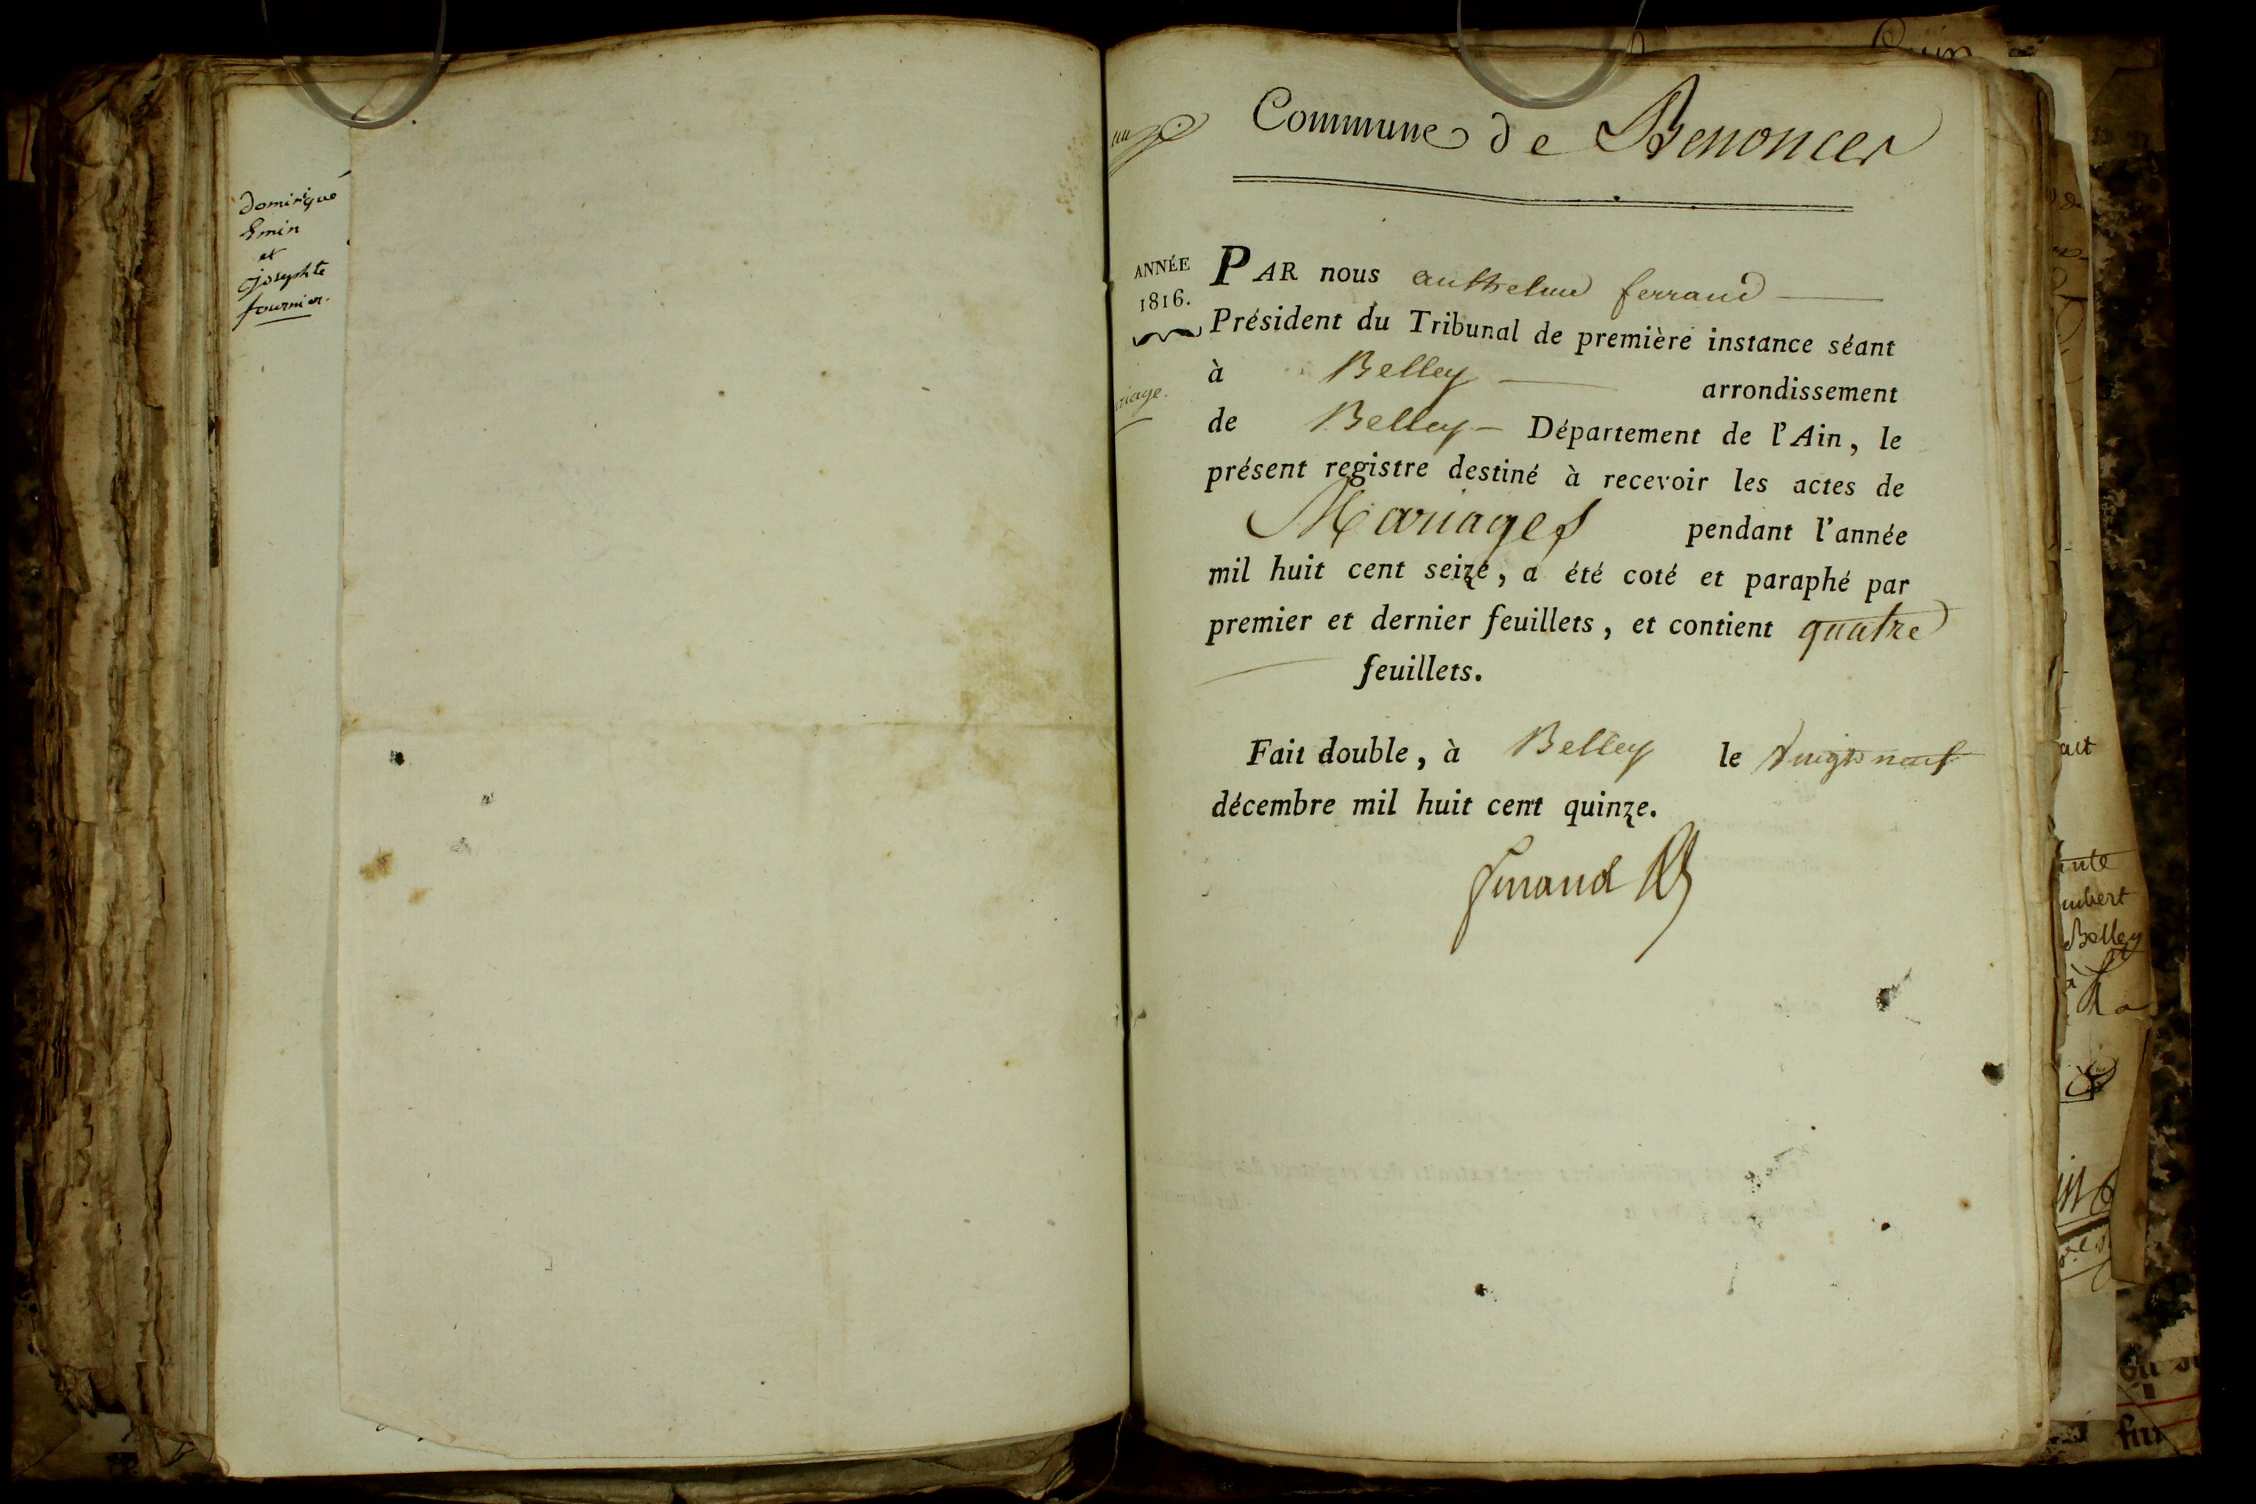 dominique
Emin
et
josephte
fournier.
Commune de Benonces
ANNÉE
1816.
PAR nous anthelme ferrand
Président du Tribunal de première instance séant
à Belley arrondissement
de Belley Département de l'Ain, le
présent registre destiné à recevoir les actes de
Mariages pendant l'année
mil huit cent seize, a été coté et paraphé par
premier et dernier feuillets, et contient quatre
feuillets.
Fait double, à Belley le vingt neuf
décembre mil huit cent quinze.
ferrand
riage.
umbert
Belley
à